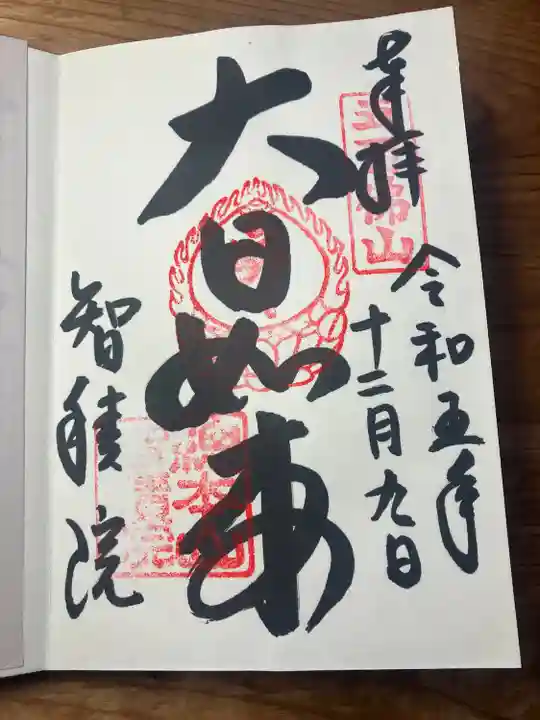 奉拝
令和五年
十二月九日
大日如来
智積院